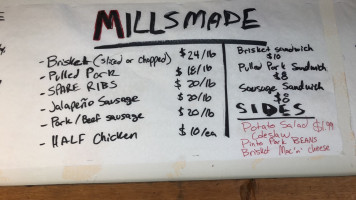 MILLSMADE
- Brisket (sliced or chopped) $24/lb
- Pulled Pork $18/lb
- SPARE RIBS $20/lb
- Jalapeño Sausage $20/lb
- Pork/Beef sausage $20/lb
- HALF Chicken $10/ea
Brisket sandwich
$10
Pulled Pork Sandwich
$8
Sausage Sandwich
$8
SIDES
Potato Salad $1.99
Coleslaw
Pinto Pork BEANS
Brisket Mac'n' cheese